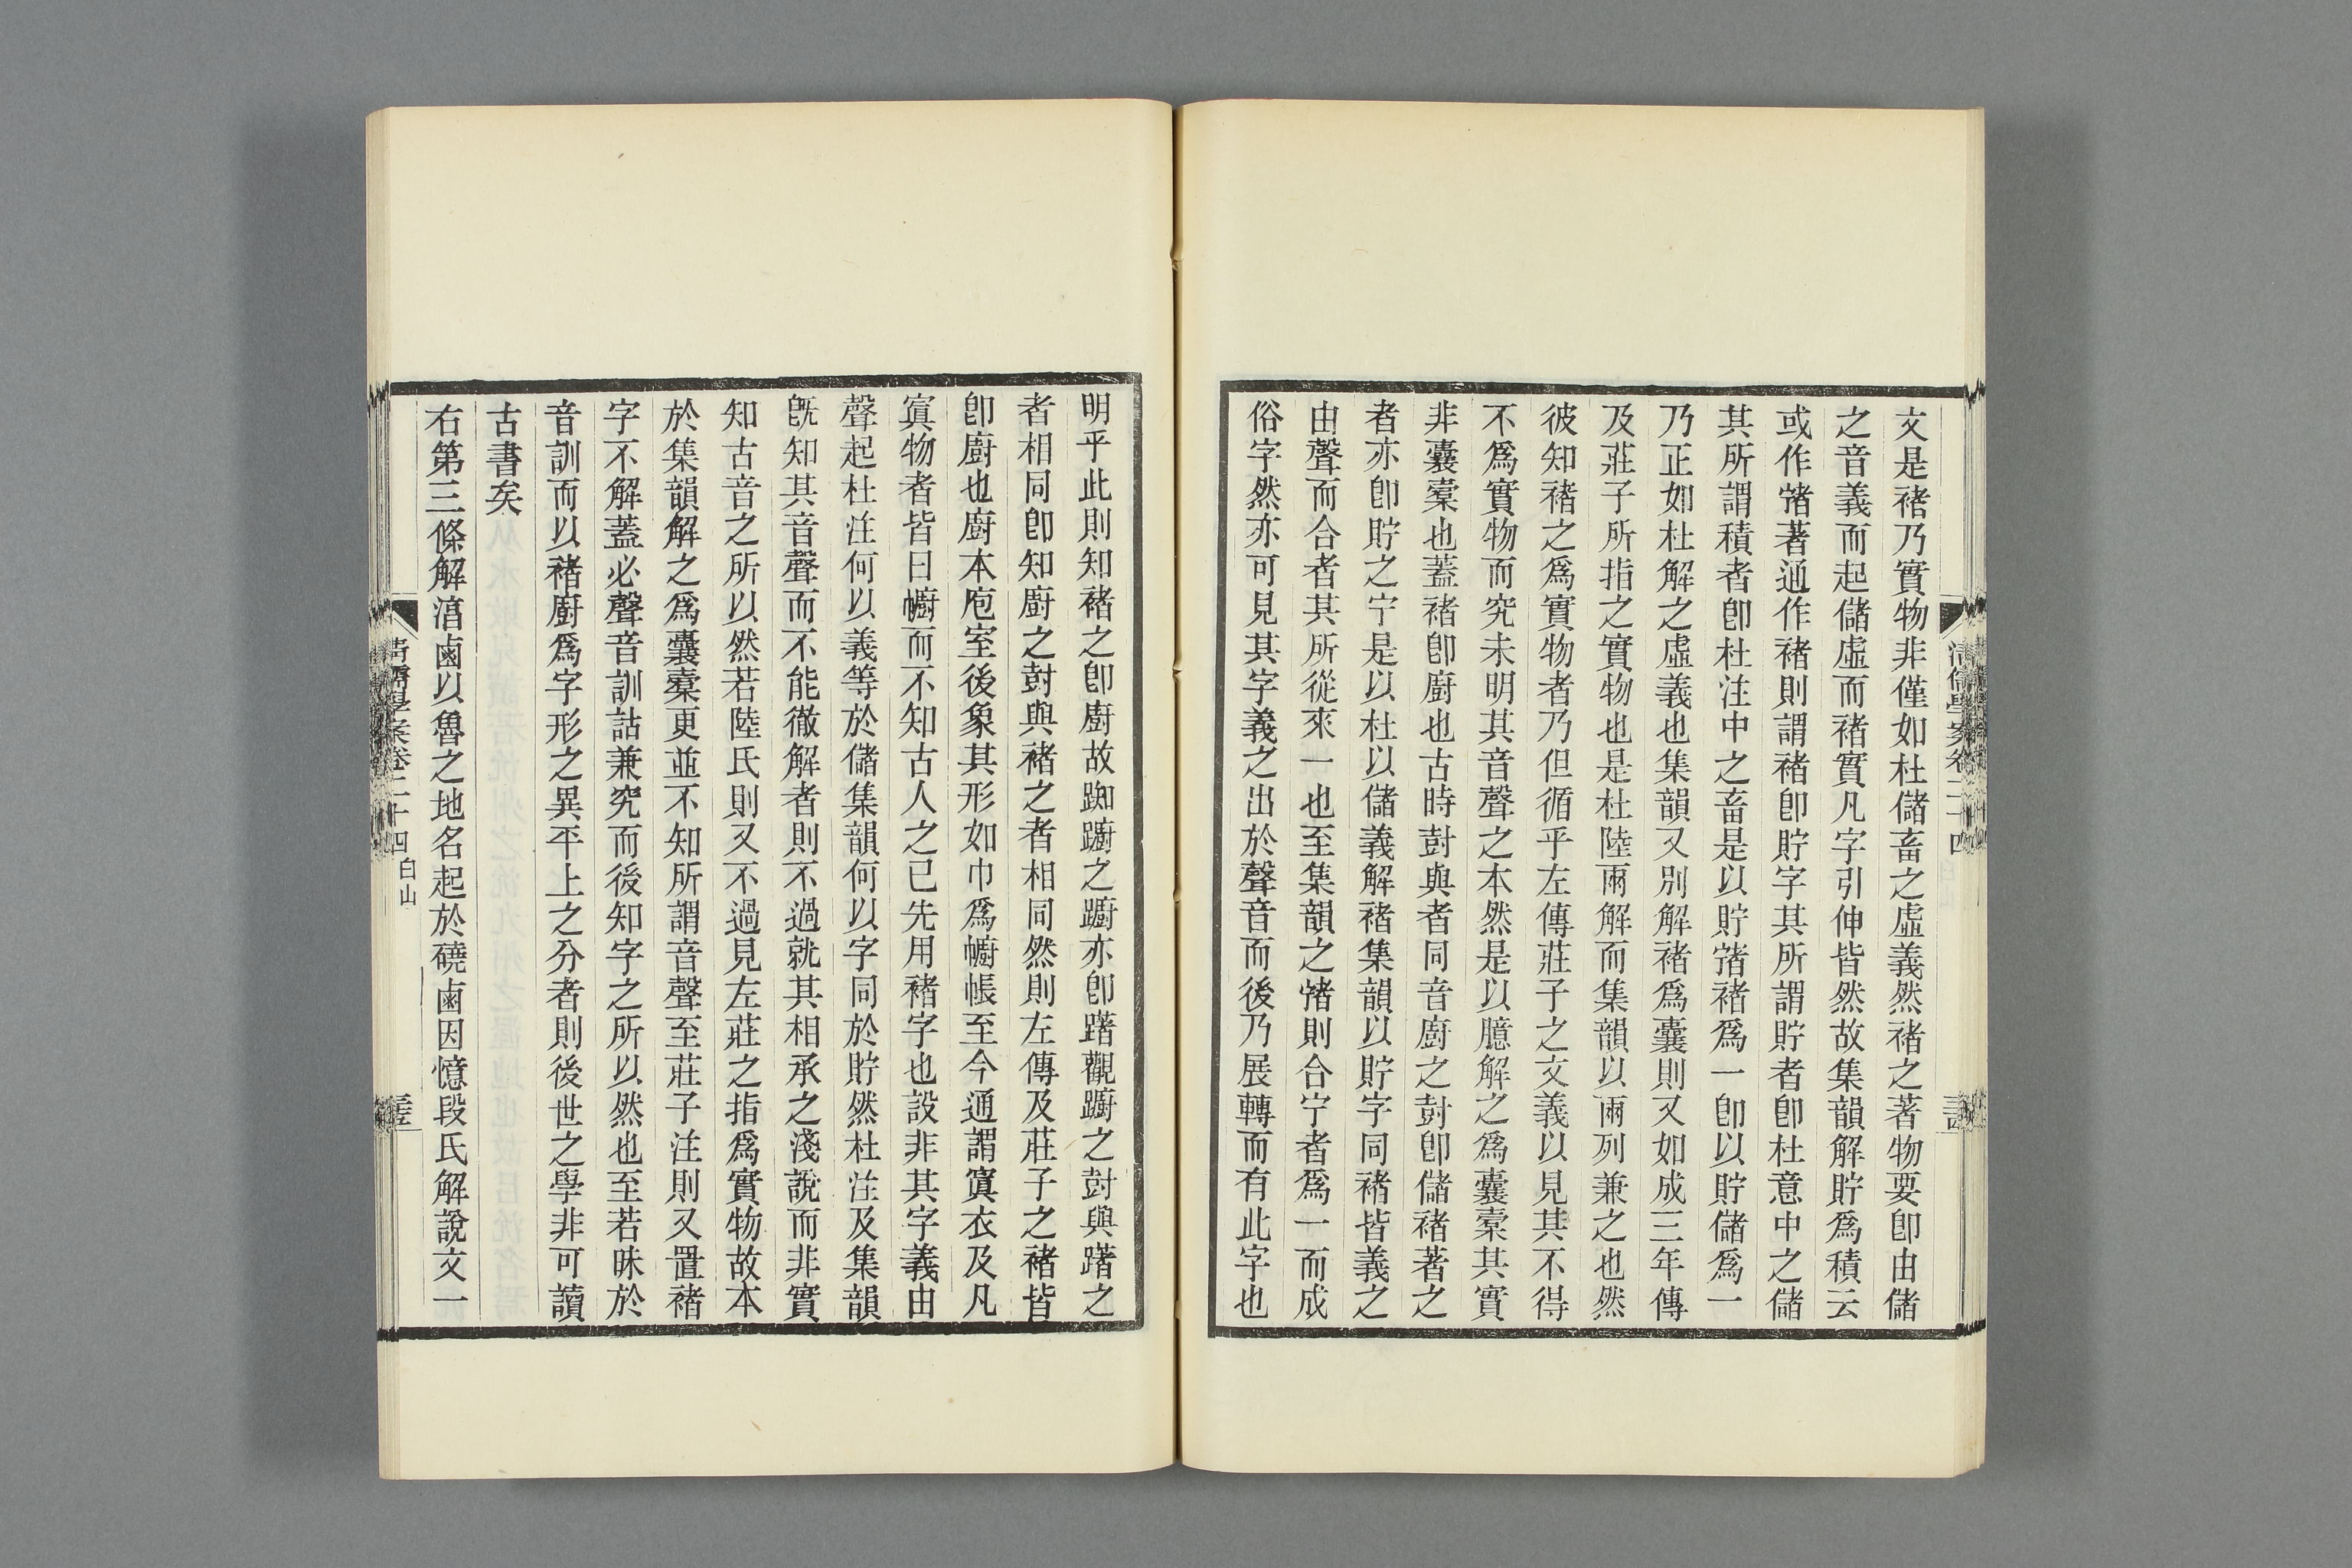 文是褚乃實物非僅如杜儲畜之虛義然褚之著物要卽由儲
之音義而起儲虛而褚實凡字引伸皆然故集韻解貯爲積云
或作㡇著通作褚則謂褚卽貯字其所謂貯者卽杜意中之儲
其所謂積者卽杜注中之畜是以貯㡇褚爲一卽以貯儲爲一
乃正如杜解之虛義也集韻又別解褚爲囊則又如成三年傳
及莊子所指之實物也是杜陸兩解而集韻以兩列兼之也然
彼知褚之爲實物者乃但循乎左傳莊子之文義以見其不得
不爲實物而究未明其音聲之本然是以臆解之爲囊橐其實
非囊橐也蓋褚卽廚也古時尌與者同音廚之尌卽儲褚著之
者亦卽貯之宁是以杜以儲義解褚集韻以貯字同褚皆義之
由聲而合者其所從來一也至集韻之㡇則合宁者爲一而成
俗字然亦可見其字義之出於聲音而後乃展轉而有此字也
清儒學案卷二十四
明乎此則知褚之卽廚故踟躕之躕亦卽躇觀躕之尌與躇之
者相同卽知廚之尌與褚之者相同然則左傳及莊子之褚皆
卽廚也廚本庖室後象其形如巾爲幮帳至今通謂寘衣及凡
寘物者皆曰幮而不知古人之已先用褚字也設非其字義由
聲起杜注何以義等於儲集韻何以字同於貯然杜注及集韻
旣知其音聲而不能徹解者則不過就其相承之淺說而非實
知古音之所以然若陸氏則又不過見左莊之指爲實物故本
於集韻解之爲囊橐更並不知所謂音聲至莊子注則又置褚
字不解蓋必聲音訓詁兼究而後知字之所以然也至若昧於
音訓而以褚廚爲字形之異平上之分者則後世之學非可讀
古書矣
右第三條解㵝鹵以魯之地名起於磽鹵因憶段氏解說文一
清儒學案卷二十四 白山